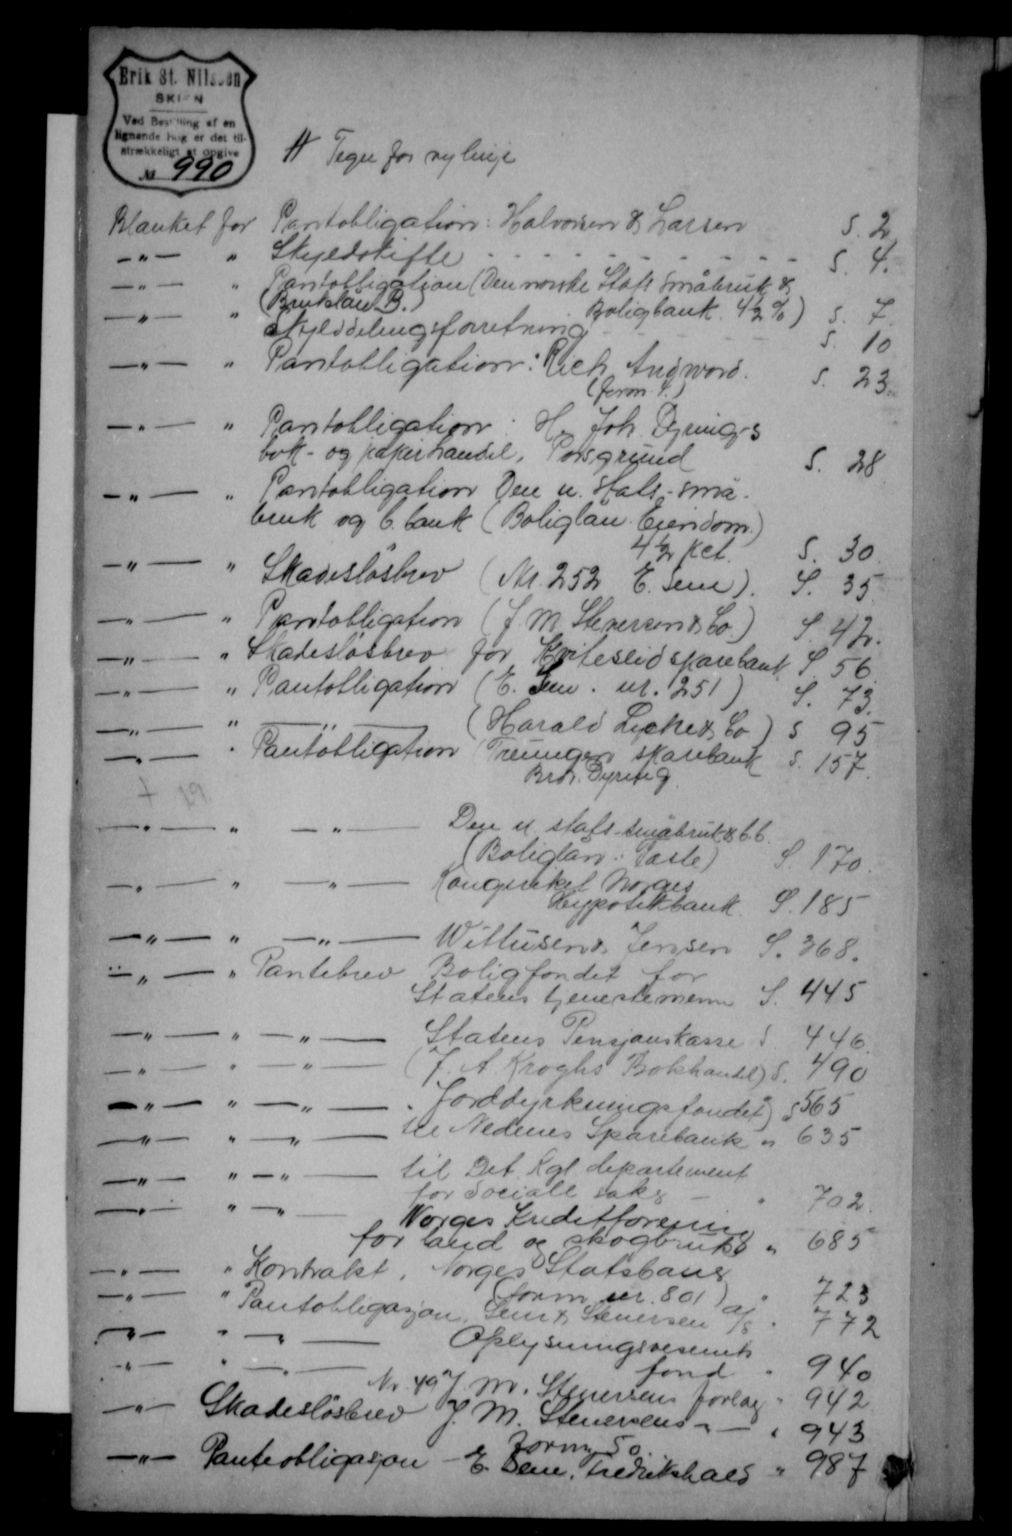 Erik St. Nilssen
SKIEN
Ved Bestilling af en
lignende bog er det til-
strækkeligt at opgive
№ 990
# Tegn for ny linje
Blanket for Pantobligation: Halvorsen & Larsen S. 2
—"— " Skyldskifte - - - - - - - - S. 4.
—"— " Pantobligation (Den norske Stats småbruk &
(Bruklån B.) Boligbank. 4½ %) S. 7.
—"— " Skylddelingsforretning - - - - - S. 10
—"— " Pantobligation: Rich. Andvord. S. 23.
—"— " Pantobligation: H. Joh. Dyrings
bok- og papirhandel, Porsgrund S. 28
—"— " Pantobligation Den n. stats-små-
bruk og b.bank (Boliglån Eiendom.)
4½ pct. S. 30
—"— " Skadesløsbrev (Nr. 252 E. Sem). S. 35
—"— " Pantobligation (J. M. Stenersen & Co) S. 42.
—"— " Skadesløsbrev for Kviteseid sparebank S. 56
—"— " Pantobligation (E. Sem. nr. 251) S. 73.
—"— " —"— (Harald Lyche & Co) S 95
—"— " Pantobligation Treungen sparebank S. 157.
Brdr. Dyring
—"— " —"— Den n. stats småbruk & b.b.
(Boliglån: ) S. 170.
—"— " —"— Kongeriket Norges
Hypotekbank S. 185
—"— " —"— Wittusen & Jensen S. 368.
—"— " Pantebrev Boligfondet for
Statens tjenestemenn S. 445
—"— " —"— Statens Pensjonskasse S 446.
—"— " —"— (J. A. Kroghs Bokhandel) S. 490
—"— " —"— Jorddyrkningsfondet) S 565
—"— " —"— til Nedenes Sparebank " 635
—"— " —"— til Det Kgl. departement
for Sociale saker — " 702.
—"— " —"— Norges Kreditforening
for land og skogbruk " 685
—"— " Kontrakt, Norges Statsbaner
(form nr. 801) " 723
—"— " Pantobligasjon, Sem & Stenersen A/S " 772
—"— " —"— Oplysningsvesenets
fond " 940
—"— " —"— Nr. 49 J. M. Stenersens forlag " 942
—"— Skadesløsbrev J. M. Stenersens —"— " 943
Form 50.
—"— Panteobligasjon — E. Sem, Fredrikshald " 987